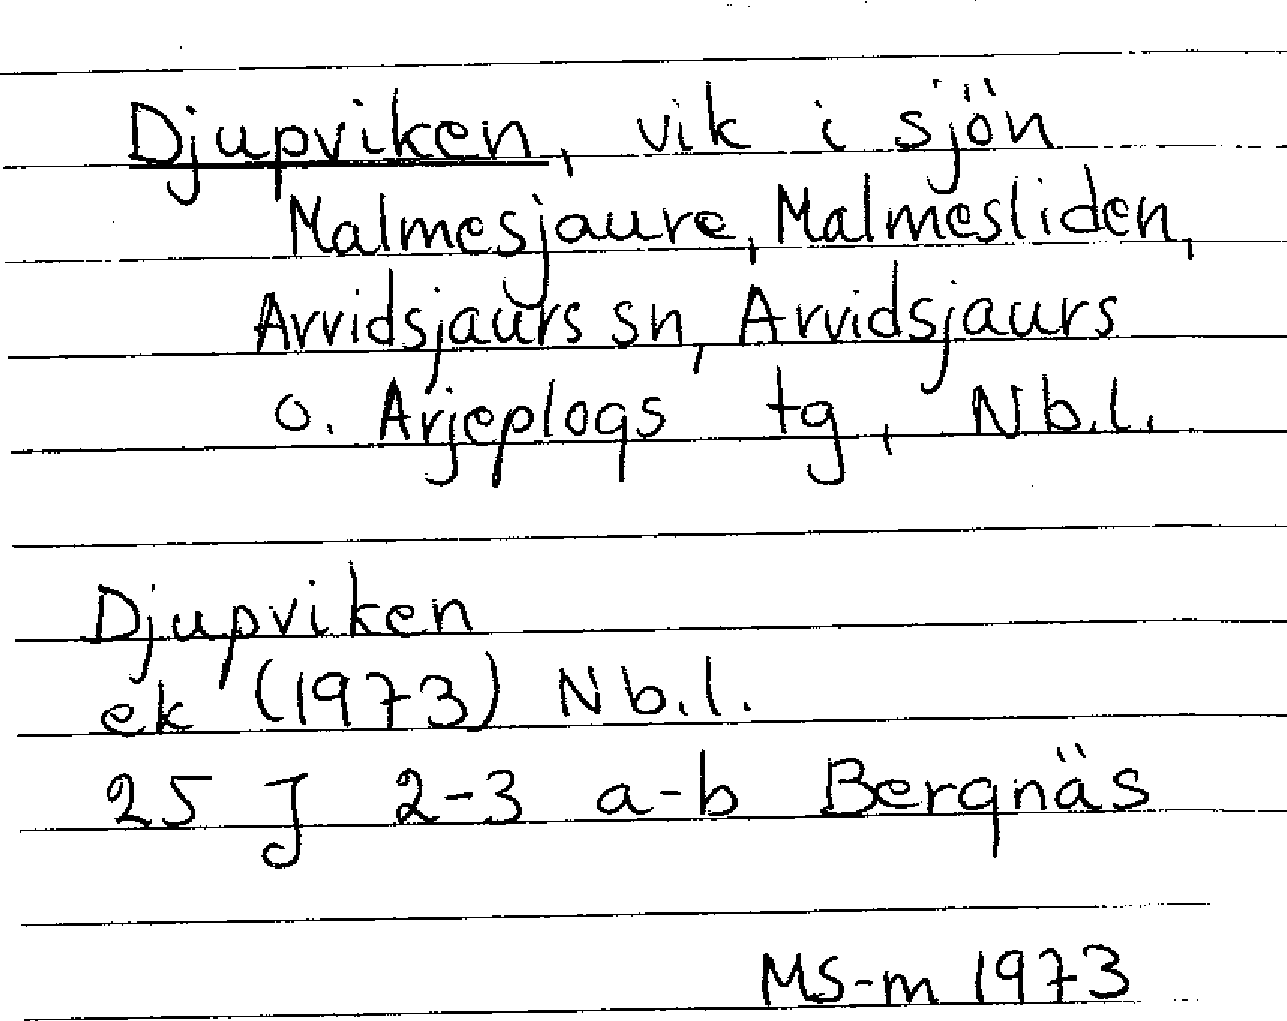 Djupviken, vik i sjön
Malmesjaure, Malmesliden,
Arvidsjaurs sn, Arvidsjaurs
o. Arjeplogs tg, Nb.l.
Djupviken
ek (1973) Nb.l.
25 J 2-3 a-b Bergnäs
MS-m 1973